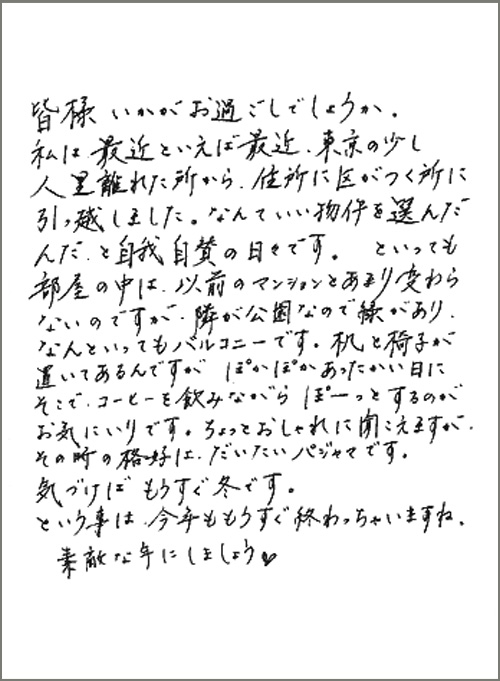 皆様 いかがお過ごしでしょうか。
私は最近といえば最近、東京の少し
人里離れた所から、住所に区がつく所に
引っ越しました。なんていい物件を選んだ
んだ、と自我自賛の日々です。 といっても
部屋の中は、以前のマンションとあまり変わら
ないのですが、隣が公園なので緑があり、
なんといってもバルコニーです。机と椅子が
置いてあるんですが ぽかぽかあったかい日に
そこで、コーヒーを飲みながら ぽーっとするのが
お気にいりです。ちょっとおしゃれに聞こえますが、
その時の格好は、だいたいパジャマです。
気づけば もうすぐ冬です。
という事は、今年ももうすぐ終わっちゃいますね。
素敵な年にしましょう♥